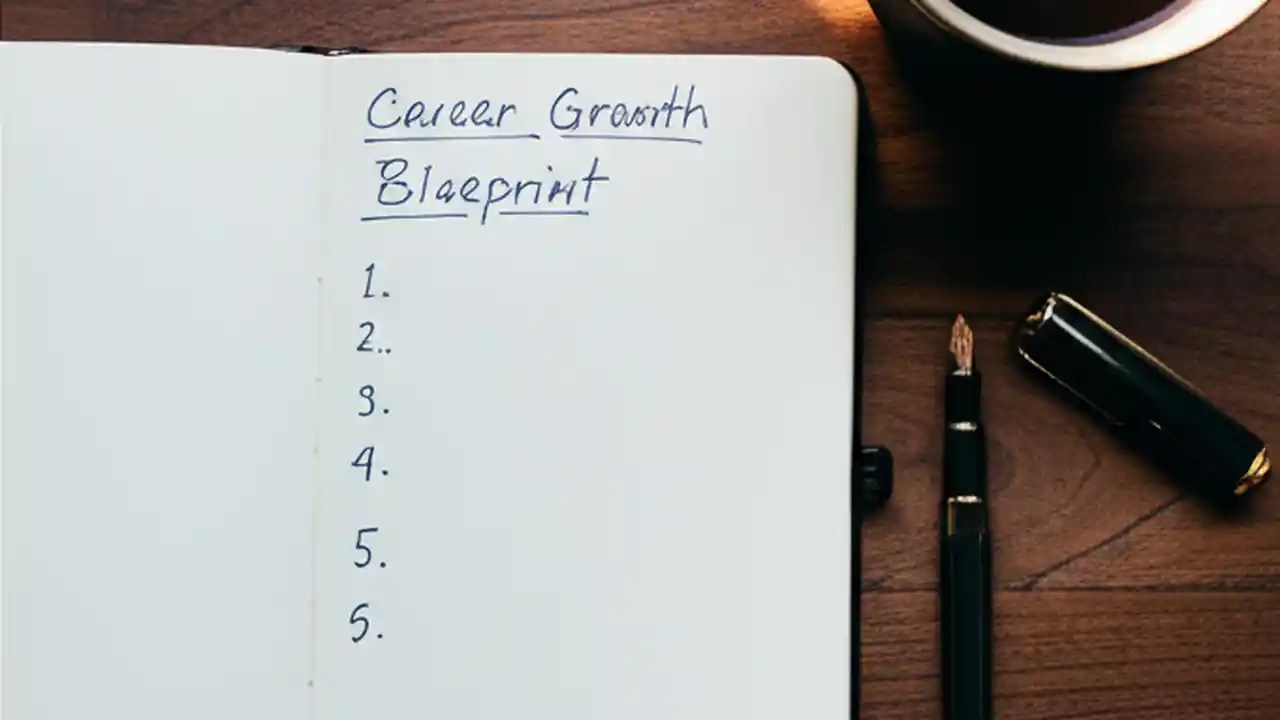 Career Growth
Blueprint
1.
2..
3.
4.
5.
5.